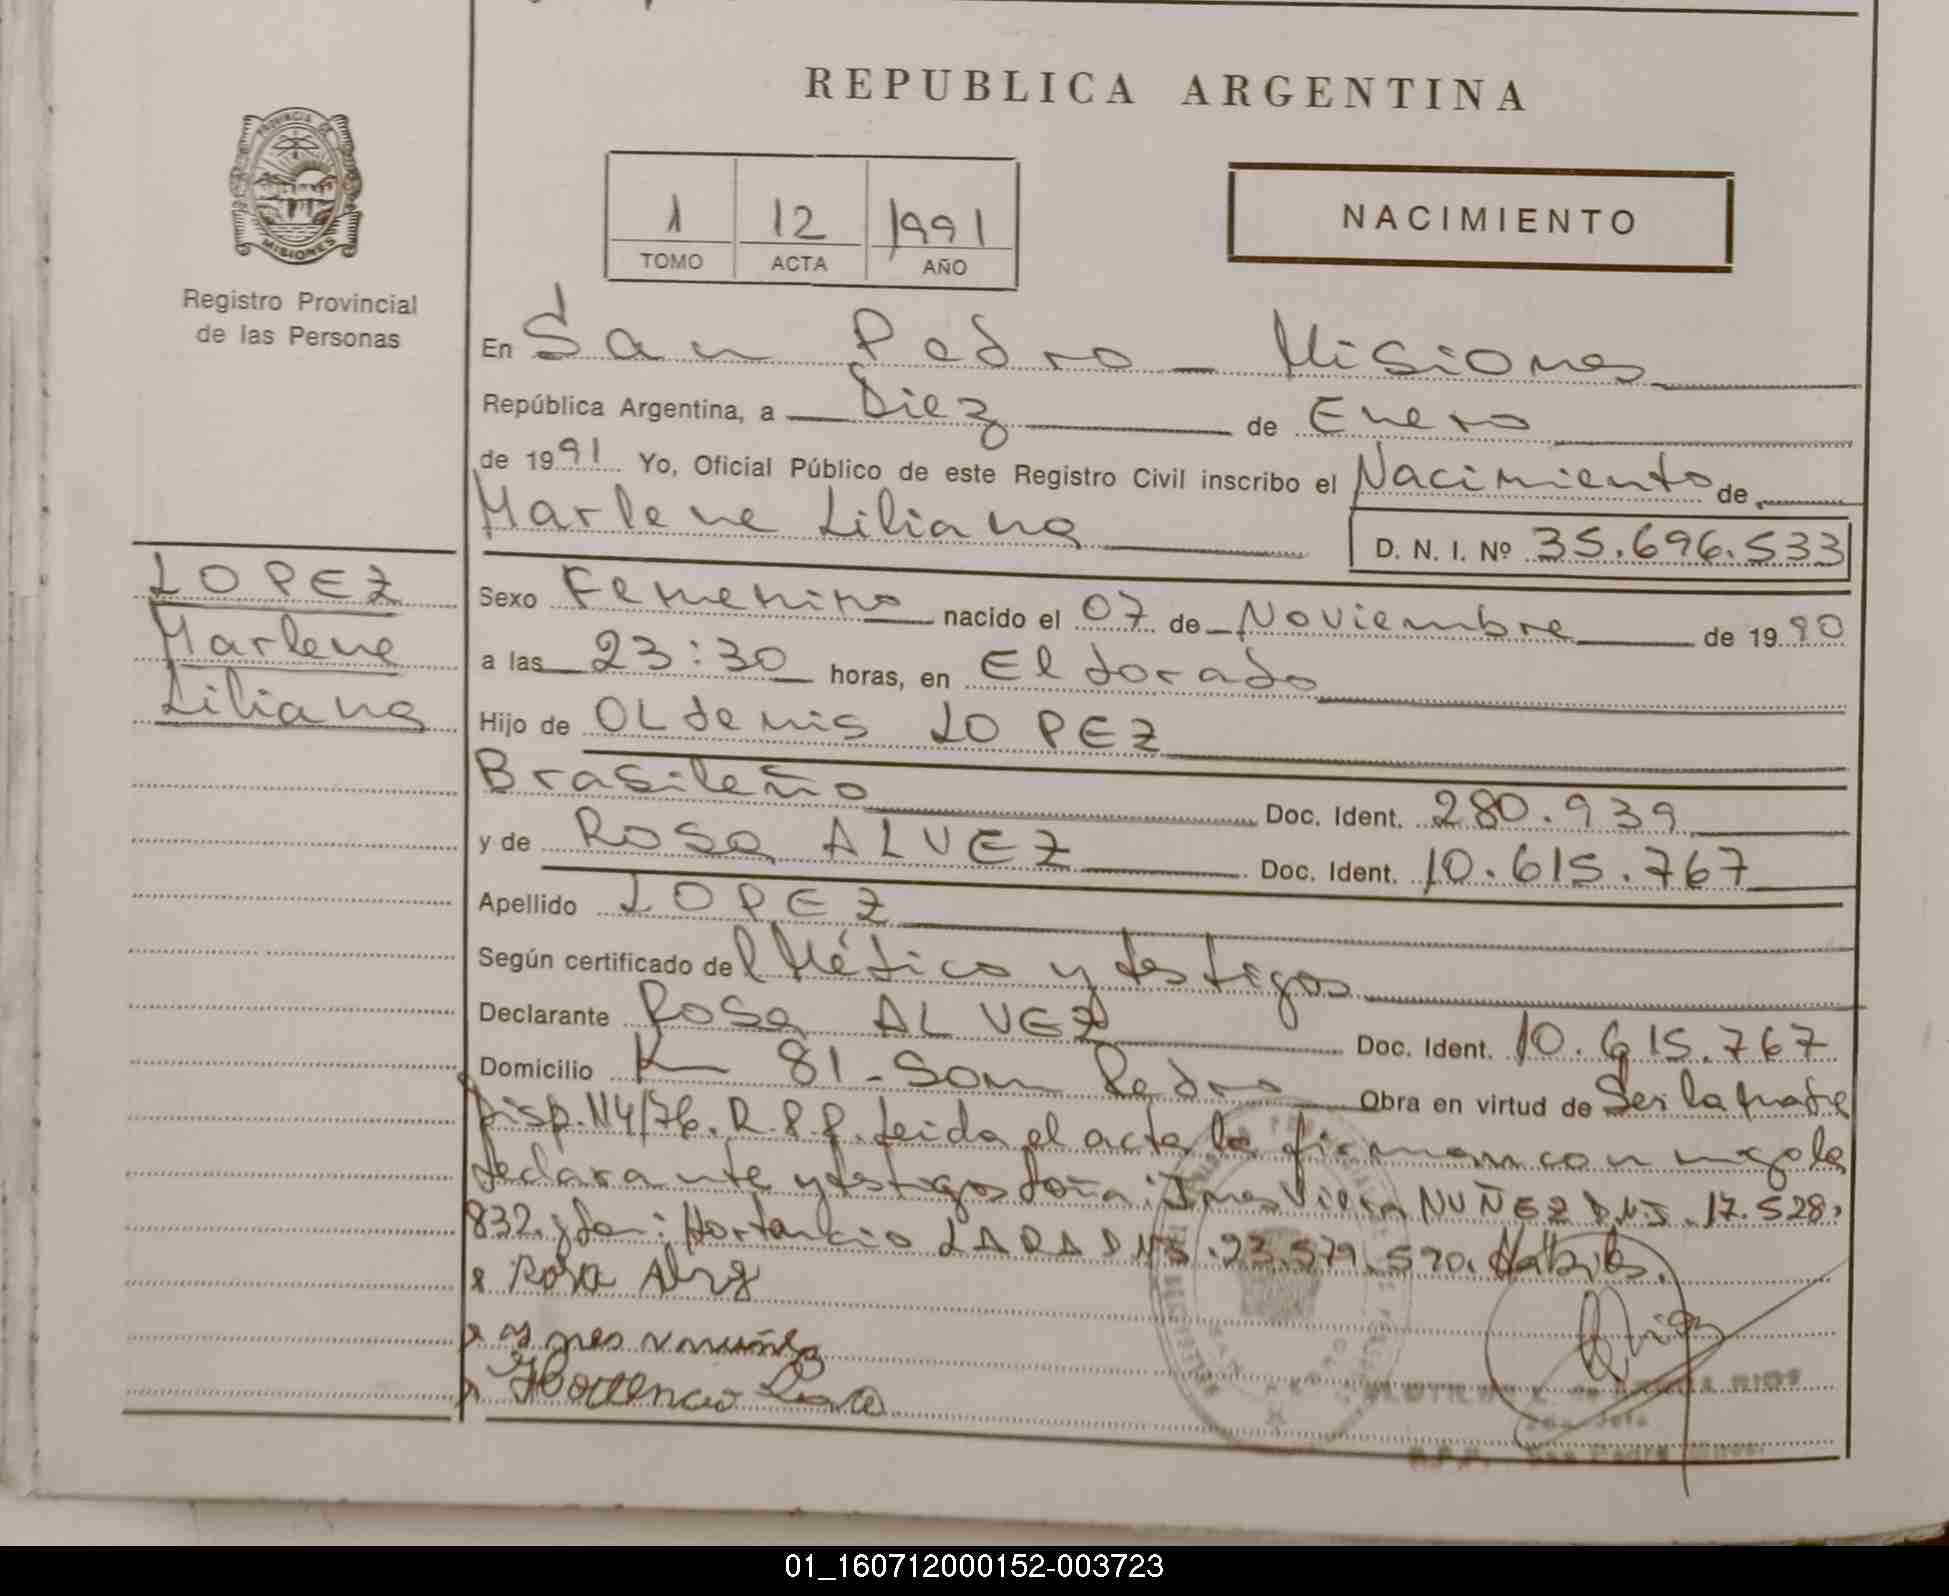 REPUBLICA ARGENTINA
PROVINCIA DE
MISIONES
Registro Provincial
de las Personas
1 12 1991
TOMO ACTA AÑO
NACIMIENTO
En San Pedro - Misiones
República Argentina, a Diez de Enero
de 1991 Yo, Oficial Público de este Registro Civil inscribo el Nacimiento de
Marlene Liliana
D. N. I. Nº 35.696.533
LOPEZ
Marlene
Liliana
Sexo Femenino nacido el 07 de Noviembre de 1990
a las 23:30 horas, en Eldorado
Hijo de OLdemis LOPEZ
Brasileño Doc. Ident. 280.939
y de Rosa ALVEZ Doc. Ident. 10.615.767
Apellido LOPEZ
Según certificado del Médico y testigos
Declarante Rosa ALVEZ Doc. Ident. 10.615.767
Domicilio K 81 - San Pedro Obra en virtud de Ser la madre
Disp. 114/76. R.P.P. Leida el acta la firman conmigo la
declarante y testigos doña: Ines Viera NUÑEZ D.N.I. 17.528.
832. y don: Hortencio LARA DNI. 23.579.570.
Rosa Alvez
Hortencio Lara
San Pedro